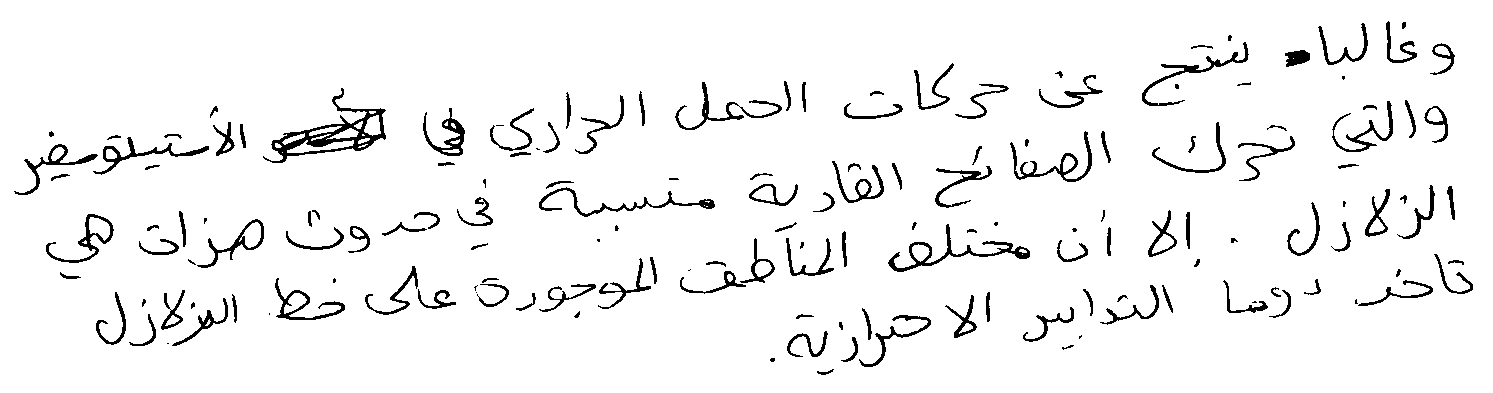 وغالبا ينتج عن حركات الحمل الحراري في الأستيلتوسفير
والتي تحرك الصفائح القارية متسببة في حدوث هزات هي
الزلازل . إلا أن مختلف المناطق الموجودة على خط الزلازل
تاخد دوما التدابير الاحترازية.